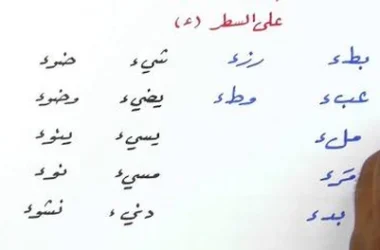 على السطر (ء)
بطء رزء شيء ضوء
عبء وطء يضيء وضوء
ملء يسيء ينوء
مرء مسيء نوء
بدء دنيء نشوء